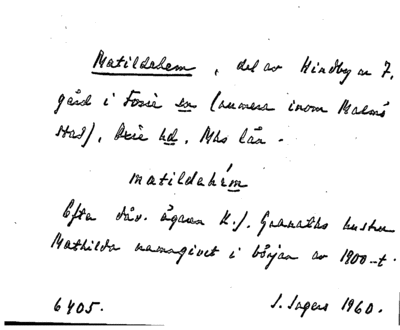 Matildahem, del av Hindby nr 7,
gård i Fosie sn (numera inom Malmö
stad), Oxie hd, Mhs län.
matildahém
Efter dåv. ägaren K.J. Granaths hustru
Mathilda namngivet i början av 1900-t.
6405. S. Ingers 1960.